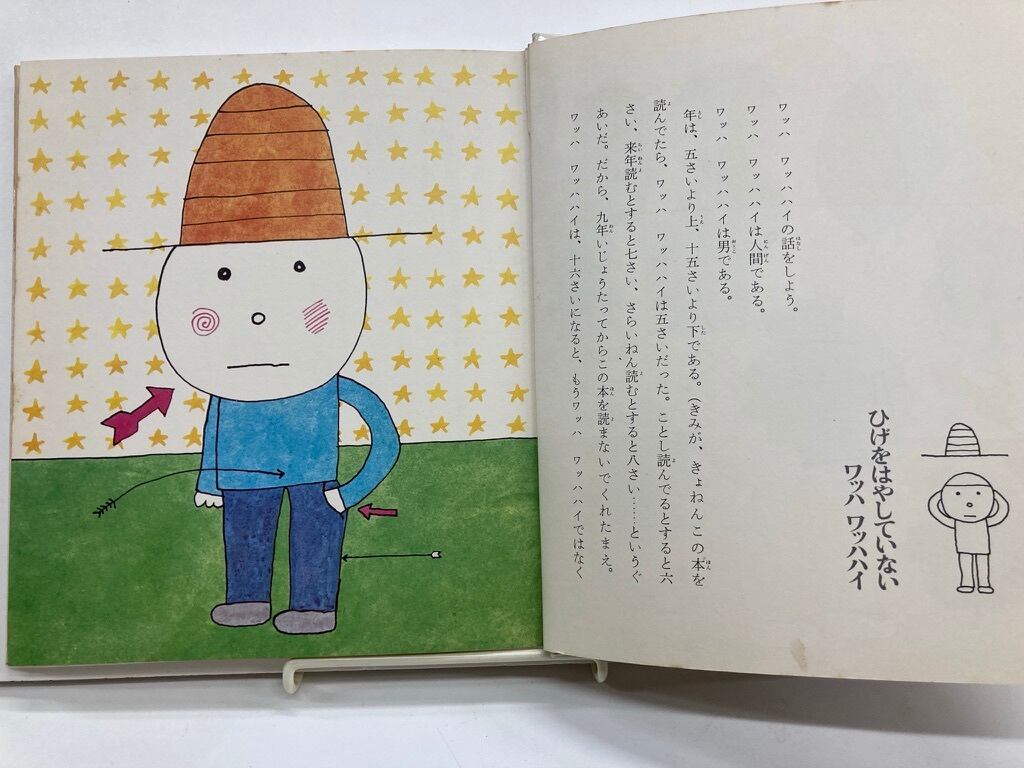 ひげをはやしていない
ワッハ ワッハハイ
ワッハ ワッハハイの話をしよう。
ワッハ ワッハハイは人間である。
ワッハ ワッハハイは男である。
年は、五さいより上、十五さいより下である。(きみが、きょねんこの本を
読んでたら、ワッハ ワッハハイは五さいだった。ことし読んでるとすると六
さい、来年読むとすると七さい、さらいねん読むとすると八さい……というぐ
あいだ。だから、九年いじょうたってからこの本を読まないでくれたまえ。
ワッハ ワッハハイは、十六さいになると、もうワッハ ワッハハイではなく